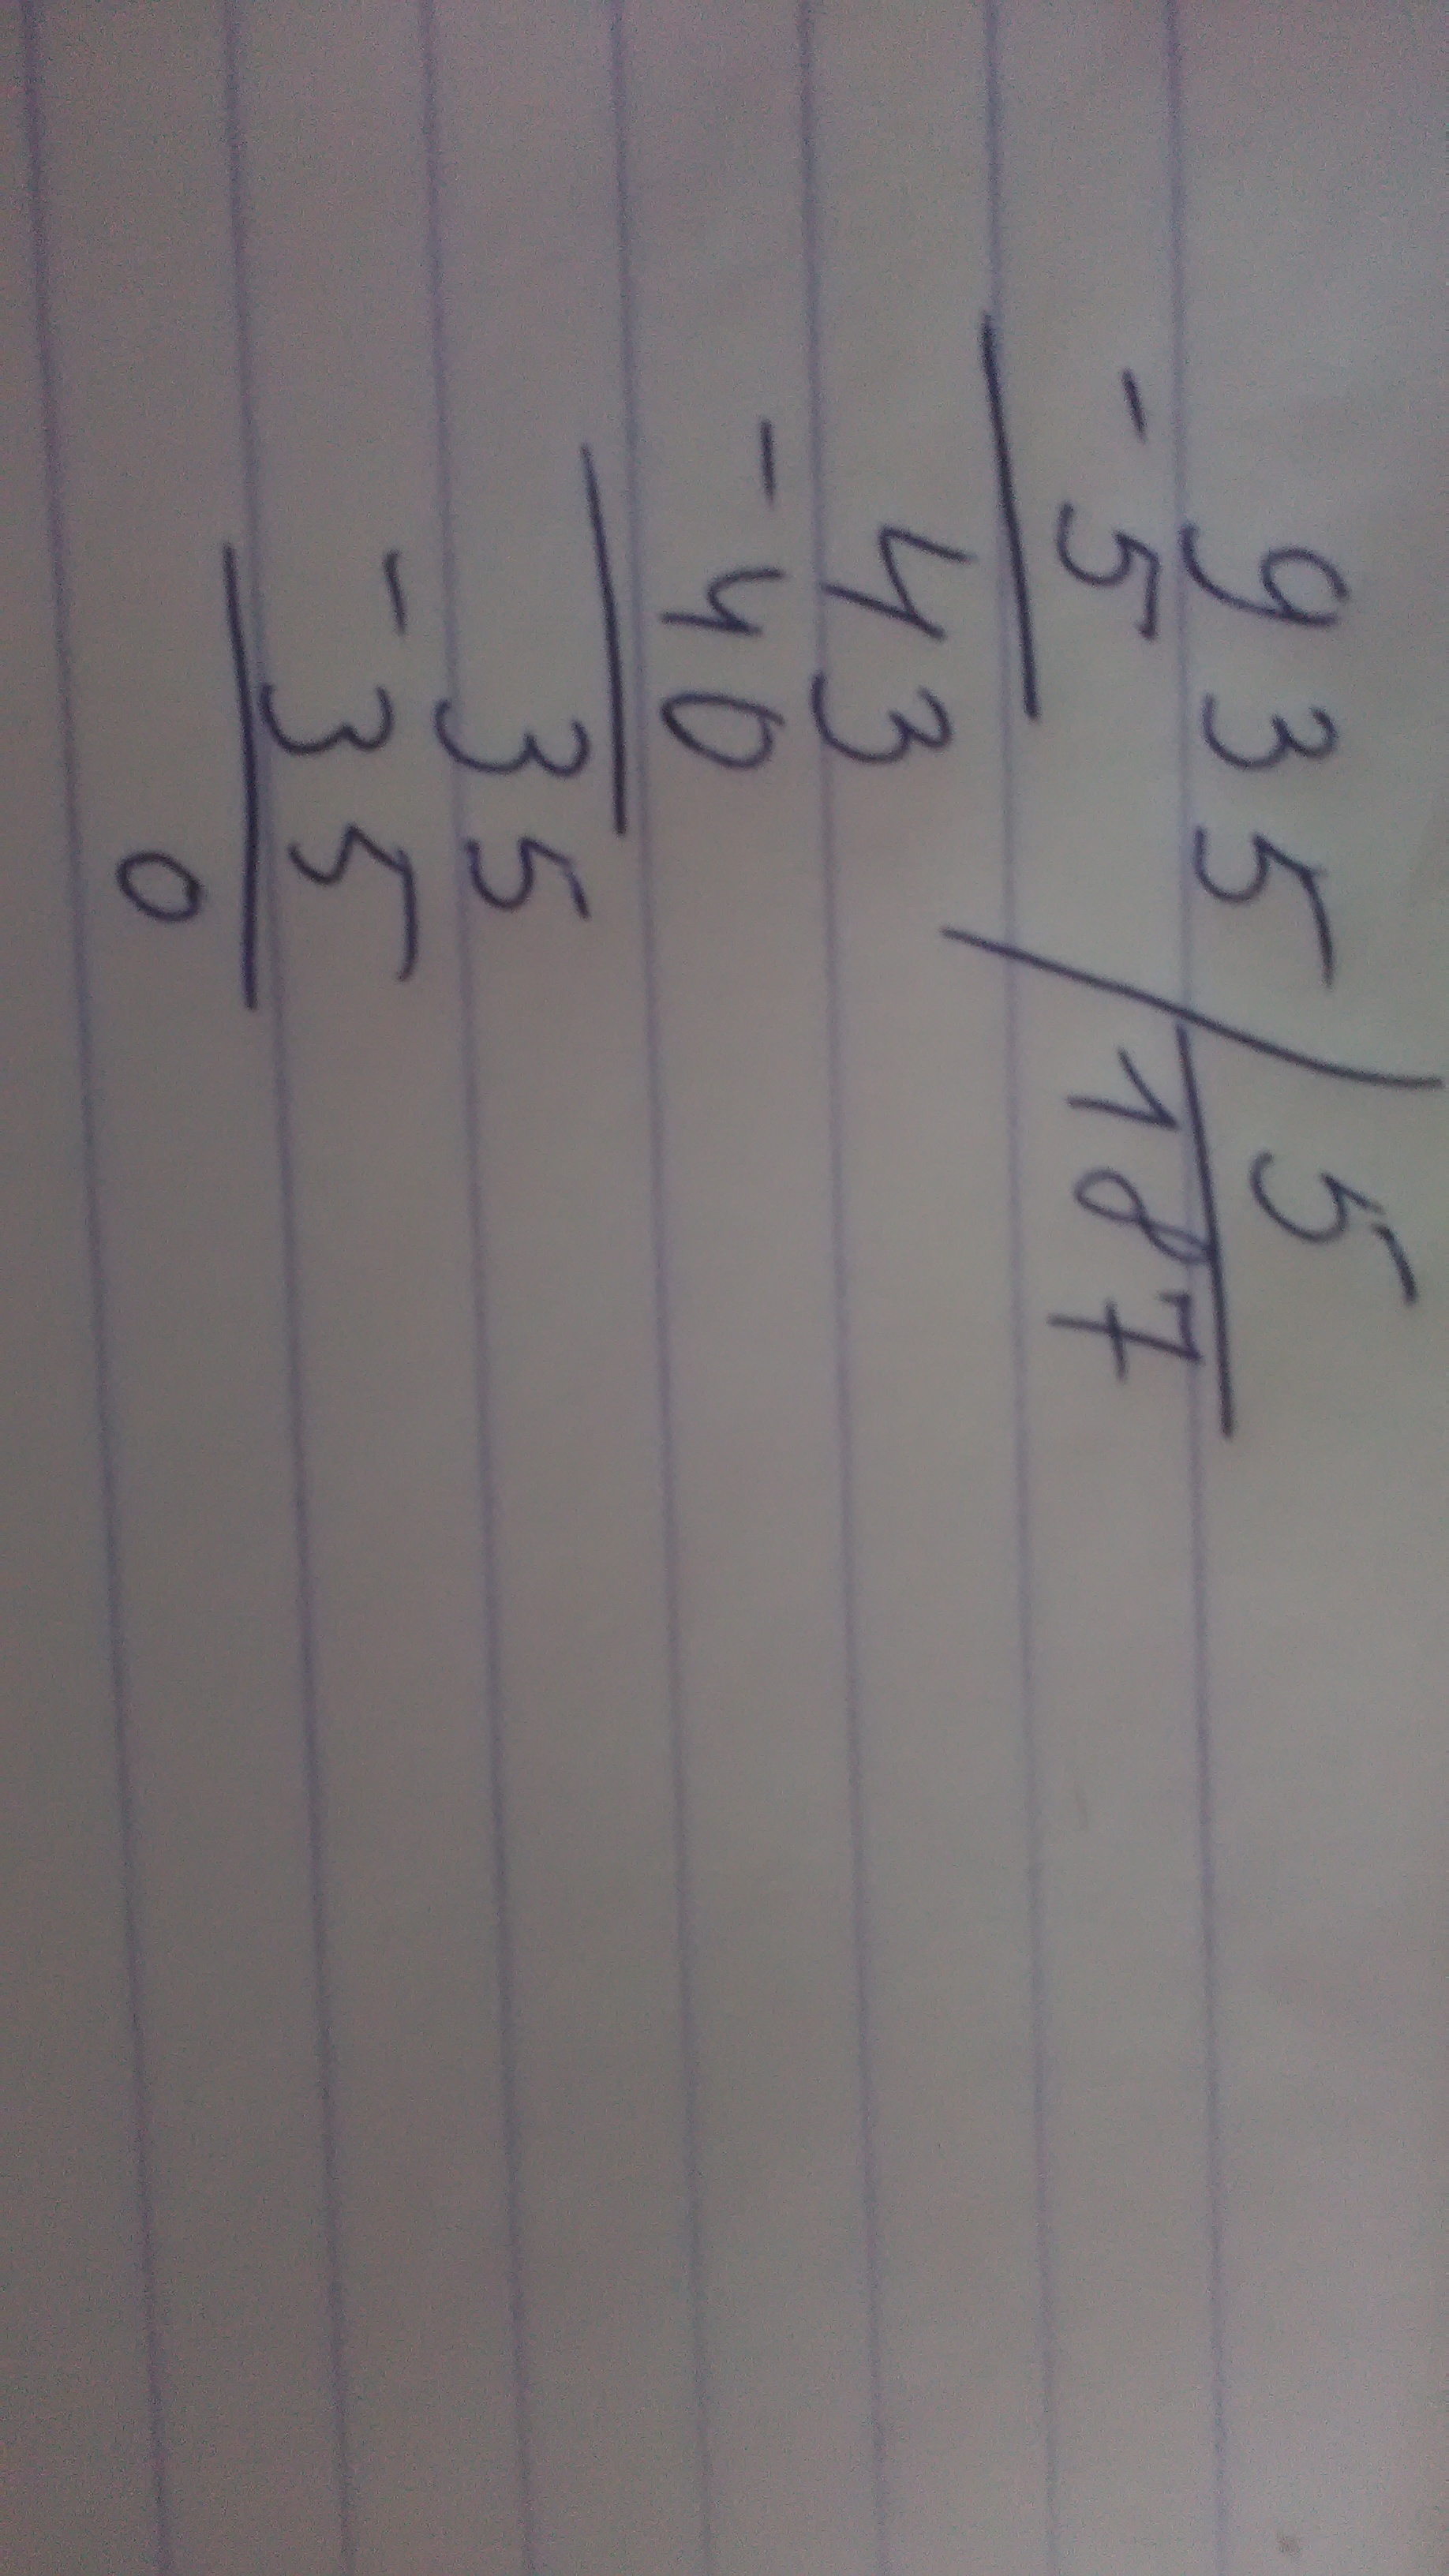 935/5
-5 187
43
-40
35
-35
0